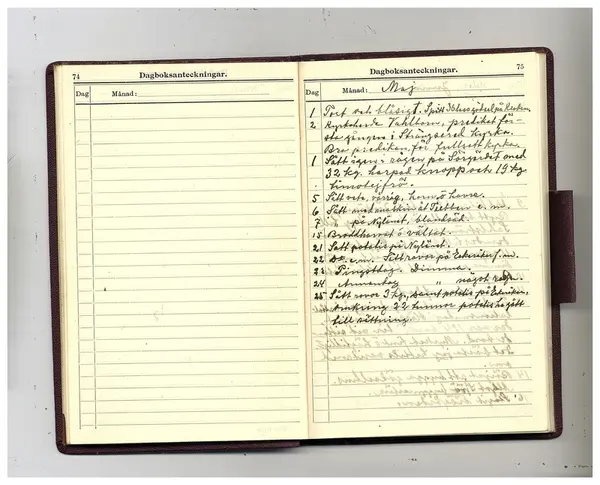 74
Dagboksanteckningar.
Dag Månad:
Dagboksanteckningar. 75
Dag Månad: Maj
1 Tort och blåsigt. Spritt
2 Kyrkoherde Dahlbom, prediket för-
sta gången i Strängsered kyrka.
Bra predikan, för fullsatt kyrka
1 Sått igen i rågen på Sörgärdet med
32 kg. harpad knopp och 19 kg
timotejfrö.
5 Sått vete, vårråg, korn o havre.
6 Sått med maskin åt e. m.
7 " på Nylånet, blandsäd.
15 Broddharvat o vältat.
21 Satt potatis på Nylånet.
22 Do e.m. Sått rovor på f. m.
23 Pingstdag. Dimma.
24 Annandag " något regn.
25 Sått rovor 3 kg, samt potatis på
omkring 22 tunnor potatis ha gått
till sättning.